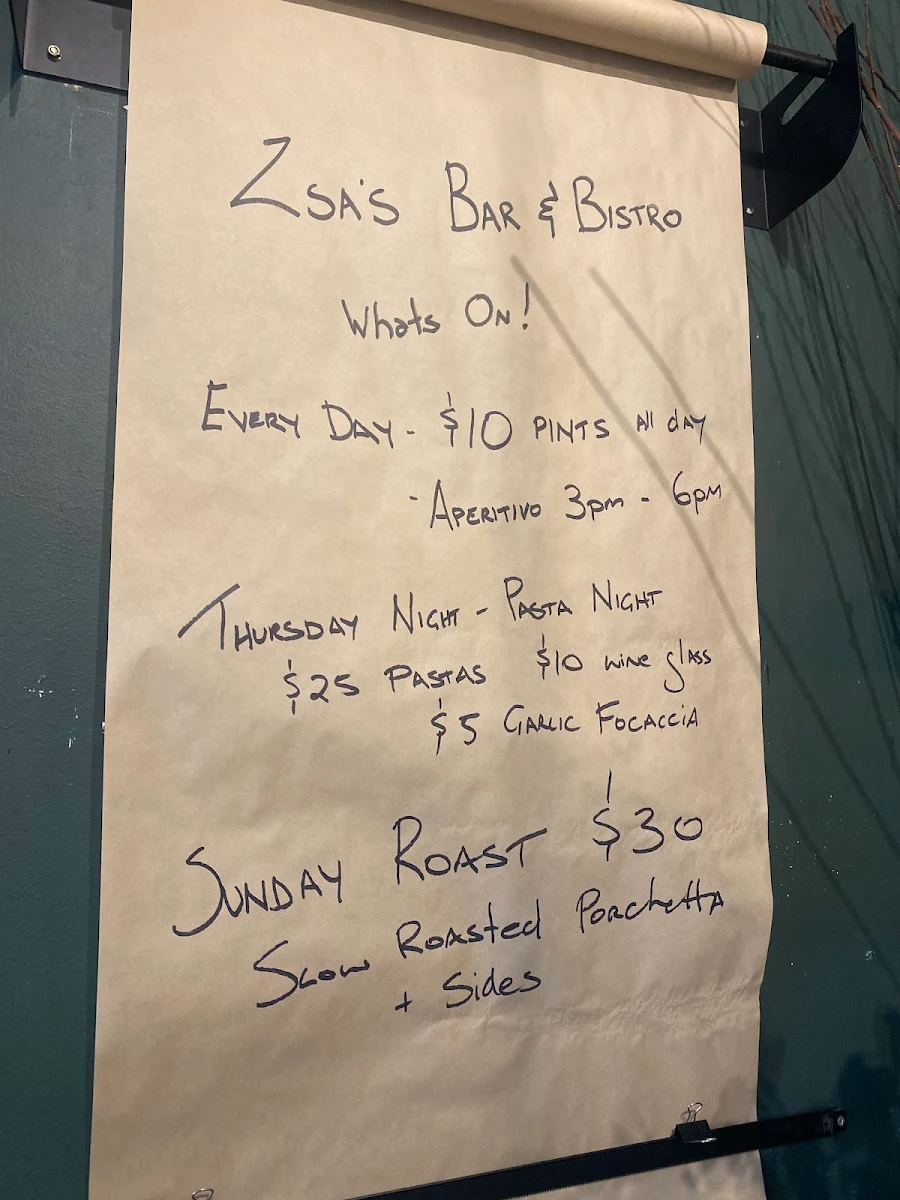 ZSA'S BAR & BISTRO
Whats ON!
EVERY DAY - $10 PINTS All dAY
- APERITIVO 3pm - 6pm
THURSDAY NIGHT - PASTA NIGHT
$25 PASTAS $10 wine glass
$5 GARLIC FOCACCIA
SUNDAY ROAST $30
SLOW ROASTED PORCHETTA
+ Sides